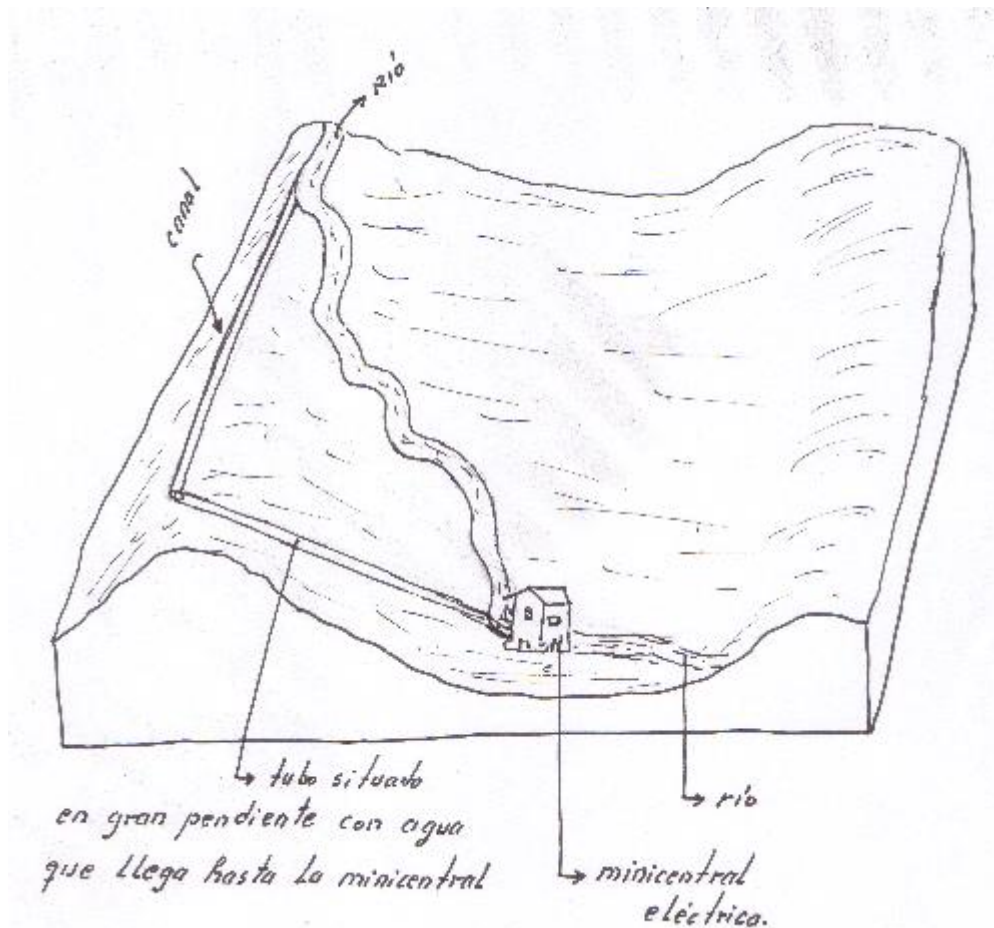 Río
canal
tubo situado
en gran pendiente con agua
que llega hasta la minicentral
río
minicentral
eléctrica.